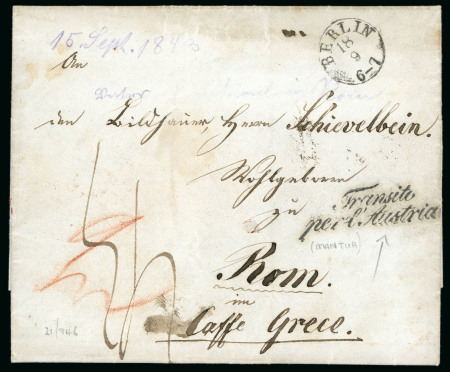 15 Sept. 1843
BERLIN
18
9
6-7
An
den Bildhauer, Herrn Schievelbein.
Wohlgeboren
zu
Transito
per l'Austria
(MANTUA)
Rom.
im
Caffe Grece.